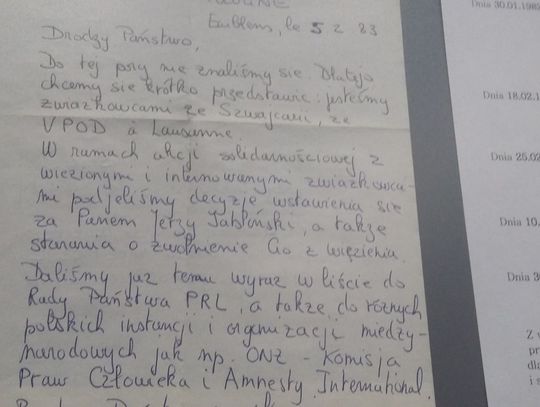 Ecublens, le 5.2.83
Drodzy Państwo,
Do tej pory nie znaliśmy się. Dlatego
chcemy się krótko przedstawić: jesteśmy
związkowcami ze Szwajcarii, ze
VPOD à Lausanne.
W ramach akcji solidarnościowej z
więzionymi i internowanymi związkowca-
mi podjeliśmy decyzję wstawienia się
za Panem Jerzy Jabłoński, a także
starania o zwolnienie Go z więzienia.
Daliśmy już temu wyraz w liście do
Rady Państwa PRL, a także do różnych
polskich instancji i organizacji między-
narodowych jak np. ONZ - Komisja
Praw Człowieka i Amnesty International.
Dnia 30.01.198
Dnia 18.02.1
Dnia 25.02
Dnia 10.
Dnia 3
Z
pr
dl
i s